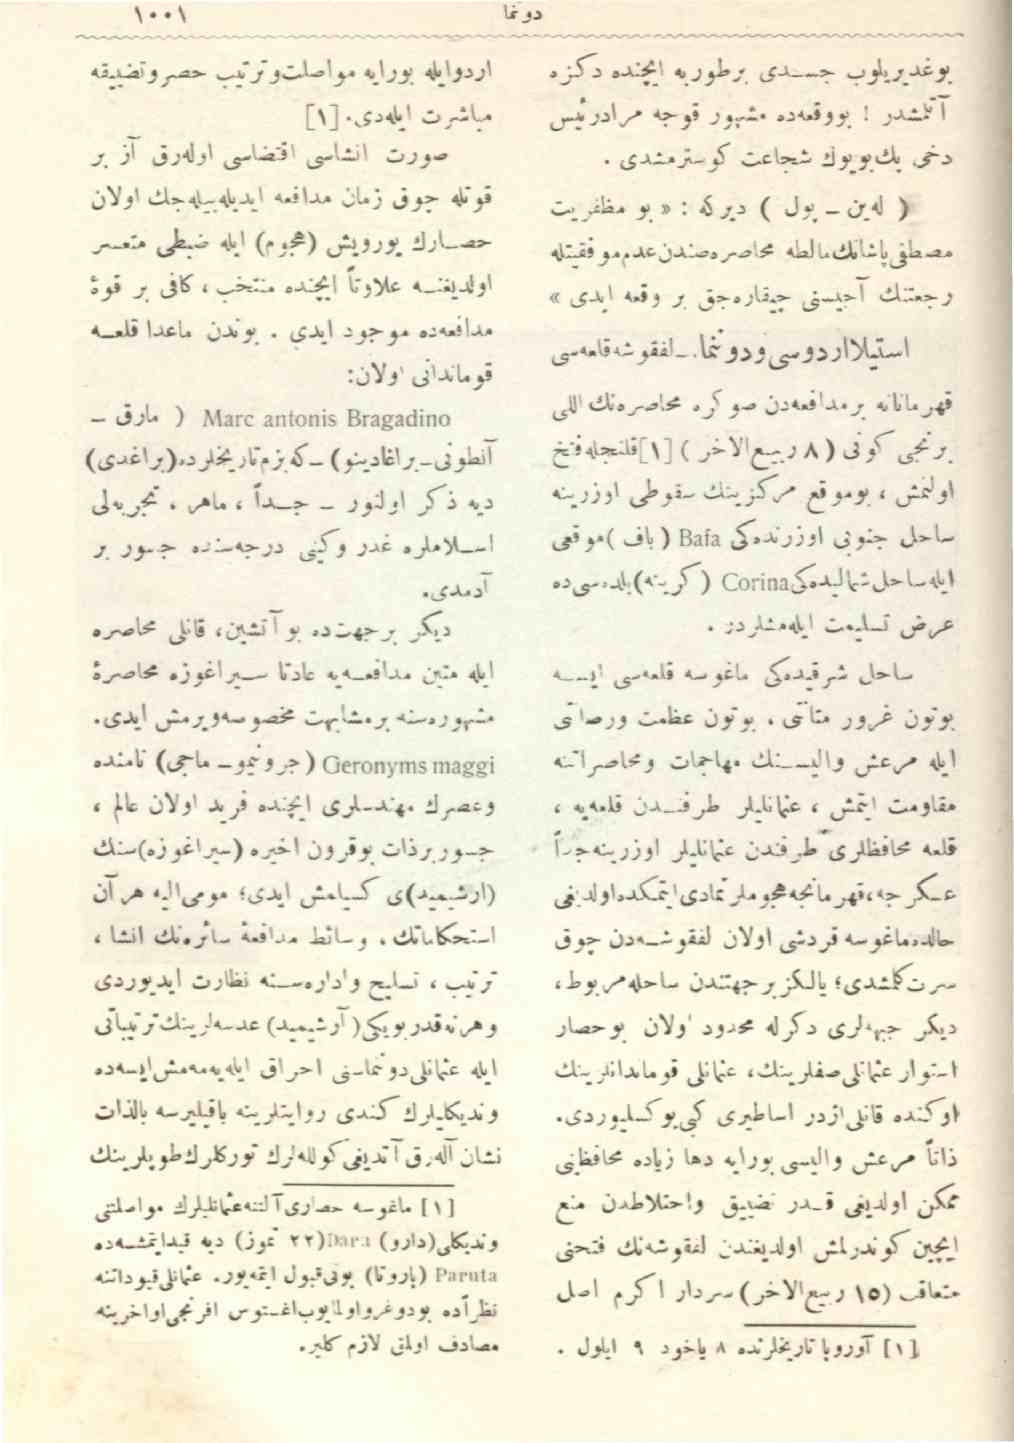 دونما
١٠٠١
بوغديريلوب جسدى برطوربه ايچنده دكزه
آتلمشدر ! بووقعه‌ده مشهور قوجه مرادرئيس
دخى پك بويوك شجاعت كوسترمشدى .
( له‌ين ــ پول ) ديركه : « بو مظفريت
مصطفى پاشانك مالطه محاصره‌صندن عدم موفقيتله
رجعتنك آجيسنى چيقاره‌جق بر وقعه ايدى »
استيلا اردوسى و دونما. ــ لفقوشه قلعه‌سى
قهرمانانه برمدافعه‌دن صوكره محاصره‌نك اللى
برنجى كونى ( ٨ ربيع الاخر ) [١] قلنجله فتح
اولنمش ، بوموقع مركزينك سقوطى اوزرينه
ساحل جنوبى اوزرنده‌كى Bafa ( باف ) موقعى
ايله ساحل شماليده‌كى Corina ( كرينه ) بلده‌سى ده
عرض تسليمت ايله‌مشلردر .
ساحل شرقيده‌كى ماغوسه قلعه‌سى ايسه
بوتون غرور متانتى ، بوتون عظمت ورصانتى
ايله مرعش واليسنك مهاجمات ومحاصراتنه
مقاومت ايتمش ، عثمانليلر طرفندن قلعه‌يه ،
قلعه محافظلرى طرفندن عثمانليلر اوزرينه جداً
عسكرجه ، قهرمانجه هجوملر تمادى ايتمكده اولديغى
حالده ماغوسه قردشى اولان لفقوشه‌دن چوق
سرت كلمشدى؛ يالكز برجهتندن ساحله مربوط ،
ديكر جبهه‌لرى دكرله محدود اولان بوحصار
استوار عثمانلى صفلرينك ، عثمانلى قوماندانلرينك
اوكنده قانلى اژدر اساطيرى كبى يوكسليوردى.
ذاتاً مرعش واليسى بورايه دها زياده محافظينى
ممكن اولديغى قدر تضييق واختلاطدن منع
ايچين كوندرلمش اولديغندن لفقوشه‌نك فتحنى
متعاقب (١٥ ربيع الاخر) سردار اكرم اصل
[١] آوروپا تاريخلرنده ٨ ياخود ٩ ايلول .
اردوايله بورايه مواصلت وترتيب حصر وتضييقه
مباشرت ايله‌دى. [١]
صورت انشاسى اقتضاسى اوله‌رق آز بر
قوتله چوق زمان مدافعه ايديله‌بيله‌جك اولان
حصارك يورويش (هجوم) ايله ضبطى متعسر
اولديغنه علاوتاً ايچنده منتخب ، كافى بر قوۀ
مدافعه‌ده موجود ايدى . بوندن ماعدا قلعه
قوماندانى اولان:
Marc antonis Bragadino ( مارق ــ
آنطونى ــ براغادينو) ــ كه بزم تاريخلرده (براغدى)
ديه ذكر اولنور ــ جداً ، ماهر ، تجربه‌لى
اسلاملره غدر وكينى درجه‌سنده جسور بر
آدمدى.
ديكر برجهت‌ده بو آتشين، قانلى محاصره
ايله متين مدافعه‌يه عادتا سيراغوزه محاصرۀ
مشهوره‌سنه برمشابهت مخصوصه ويرمش ايدى.
Geronyms maggi ( جرونيمو ــ ماجى) نامنده
وعصرك مهندسلرى ايچنده فريد اولان عالم ،
جسور برذات بوقرون اخيره (سيراغوزه) سنك
(ارشيميد)ى كسيلمش ايدى؛ مومى اليه هر آن
استحكاماتك، وسائط مدافعۀ سائره‌نك انشا ،
ترتيب ، تسليح واداره‌سنه نظارت ايديوردى
وهرنه قدر بويكى (آرشيميد) عدسه‌لرينك ترتيباتى
ايله عثمانلى دونماسنى احراق ايله‌يه‌مه‌مش ايسه‌ده
ونديكليلرك كندى روايتلرينه باقيليرسه بالذات
نشان آله‌رق آتديغى كولله‌لرك توركلرك طوپلرينك
[١] ماغوسه حصارى آلتنه عثمانليلرك مواصلتنى
ونديكلى (دارو) Dara (٢٢ تموز) ديه قيدايتمشه‌ده
Paruta (پاروتا) بونى قبول ايتمه‌يور. عثمانلى قيوداتنه
نظراً ده بودوغرو اولمايوب اغستوس افرنجى اواخرينه
مصادف اولمق لازم كلير.